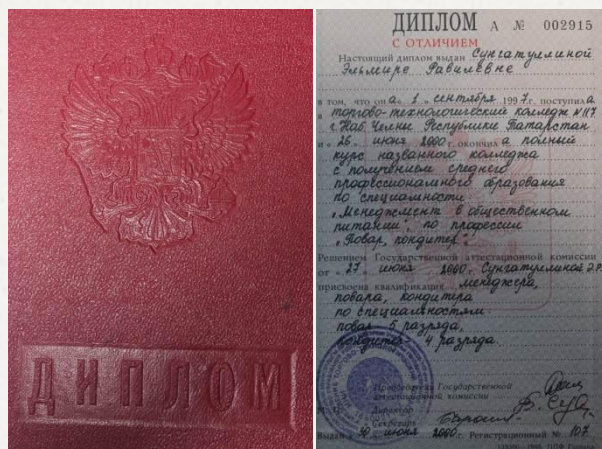 ДИПЛОМ
ДИПЛОМ А № 002915
С ОТЛИЧИЕМ
Настоящий диплом выдан Сунгатуллиной
Эльмире Равилевне
в том, что она „1„ сентября 1997г. поступила
в торгово-технологический колледж №117
г. Наб. Челны Республики Татарстан
и „26„ июня 2000г. окончила полный
курс названного колледжа
с получением среднего
профессионального образования
по специальности
„Менеджмент в общественном
питании", по профессии
„Повар, кондитер".
Решением Государственной аттестационной комиссии
от „27„ июня 2000г. Сунгатуллиной Э.Р.
присвоена квалификация менеджера,
повара, кондитера
по специальностям:
повар 5 разряда,
кондитер 4 разряда.
Председатель Государственной
аттестационной комиссии
Директор
Секретарь
Выдан „30„ июня 2000г. Регистрационный № 107